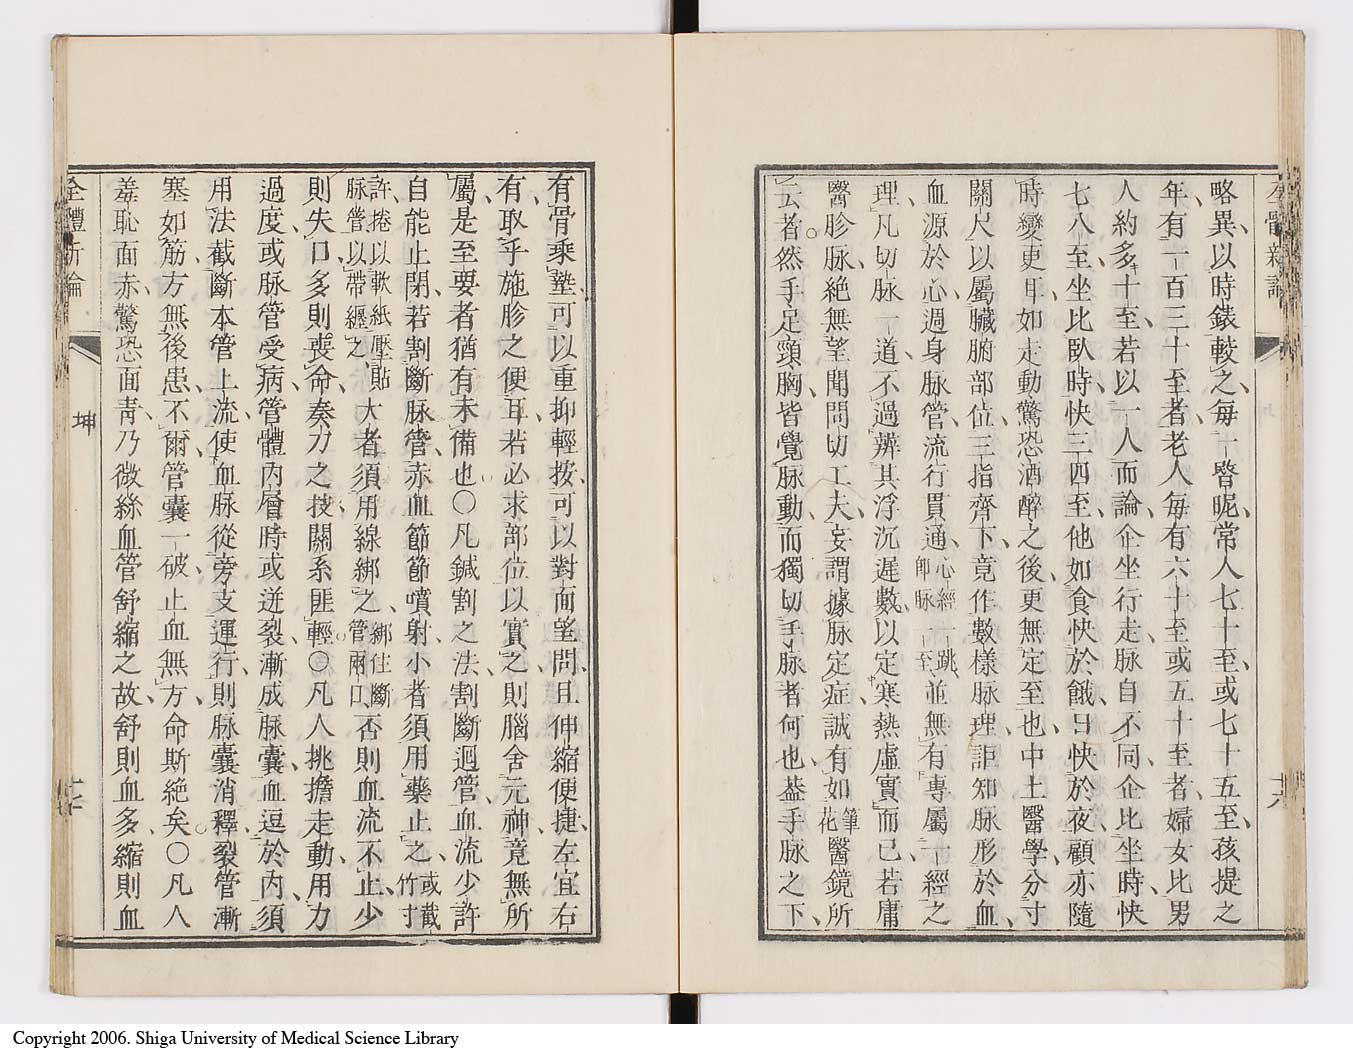 全體新論
廿六
略異以時錶較之每一瞥呢常人七十至或七十五至孩提之
年有一百三十至者老人每有六十至或五十至者婦女比男
人約多十至若以一人而論企坐行走脉自不同企比坐時快
七八至坐比臥時快三四至他如食快於餓日快於夜顧亦隨
時變更耳如走動驚恐酒醉之後更無定至也中土醫學分寸
關尺以屬臟腑部位三指齊下竟作數樣脉理詎知脉形於血
血源於心週身脉管流行貫通心經一跳即脉一至並無有專屬一經之
理凡切脉一道不過辨其浮沉遲數以定寒熱虛實而已若庸
醫胗脉絕無望聞問切工夫妄謂據脉定症誠有如筆花醫鏡所
云者然手足頸胸皆覺脉動而獨切手脉者何也葢手脉之下
有骨乘墊可以重抑輕按可以對面望問且伸縮便捷左宜右
有取乎施胗之便耳若必求部位以實之則腦舍元神竟無所
屬是至要者猶有未備也○凡鍼割之法割斷迴管血流少許
自能止閉若割斷脉管赤血節節噴射小者須用藥止之或截竹寸
許捲以軟紙壓貼脉管以帶纏之大者須用線綁之綁住斷管兩口否則血流不止少
則失口多則喪命奏刀之技關系匪輕○凡人挑擔走動用力
過度或脉管受病管體內層時或迸裂漸成脉囊血逗於內須
用法截斷本管上流使血脉從旁支運行則脉囊消釋裂管漸
塞如筋方無後患不爾管囊一破止血無方命斯絕矣○凡人
羞恥面赤驚恐面靑乃微絲血管舒縮之故舒則血多縮則血
全體新論
坤
Copyright 2006. Shiga University of Medical Science Library